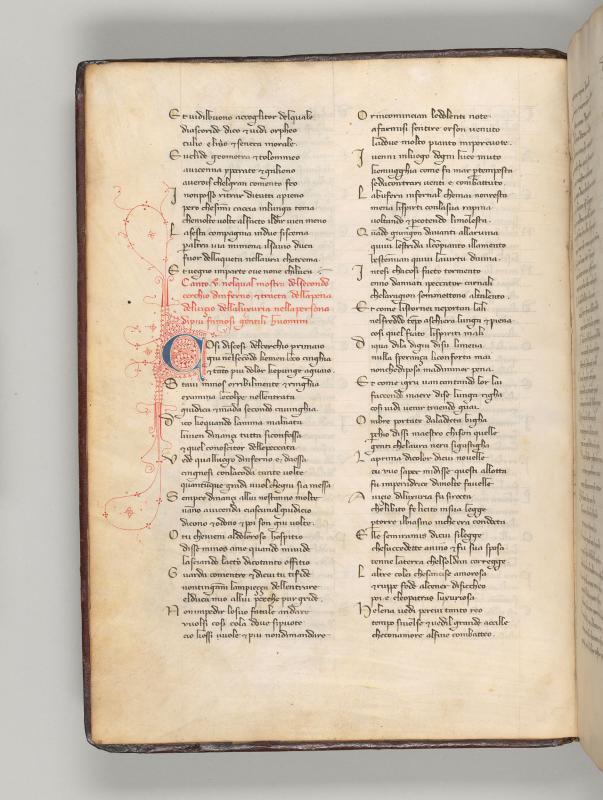 E t vidi lbuono accoglitor delquale
diascoride dico et vidi orpheo
tulio e lino et seneca morale
E uclide geometra et tolommeo
avicenna galieno
averois chelgran comento feo
I nonposso ritrar ditutti apieno
pero chesimi caccia inlungo tema
chemolte volte alfacto ildir vien meno
L a sesta compagnia induo siscema
paltra via mimena ilsavio duca
fuor dellaqueta nellaura chetrema
E t vegno imparte ove none chiluca
Canto v nelqual mostra delsecondo
cerchio dinferno et tracta dellapena
delvizio dellaluxuria nella persona
di piu famosi gentili huomini
C osi discesi delcerchio primaio
giu nelsecondo kemen loco cinghia
et tanto piu dolor kepunge aguaio
S tavi minos orribilmente et ringhia
examina lecolpe nellentrata
giudica et manda secondo cavinghia
D ico kequando lanima malnata
livien dinanzi tutta siconfessa
et quel conoscitor dellepeccata
V ede qualluogo dinferno e daessa
cingnesi conlacoda tante volte
quantunque gradi vuol chegiu sia messa
S empre dinanzi allui nestanno molte
vanno avicenda ciascuna algiudicio
dicono et odono et poi son giu volte
O tu chevieni aldoloroso hospitio
disse minos ame quando mi vide
lasciando lacto dicotanto offitio
G uarda comentre et dicui tu tifide
nontinganni lampiezza dellentrare
elduca mio allui perche pur gride
N onimpedir losuo fatale andare
vuolsi cosi cola dove sipuote
cio kessi vuole et piu nondimandare
O r incomincian ledolenti note
afarmisi sentire or son venuto
ladove molto pianto mipercuote
I venni inluogo dogni luce muto
kemugghia come fa mar per tempesta
se dicontrari venti e combattuto
L abufera infernal chemai nonresta
mena lispirti conlasua rapina
voltando et percotendo limolesta
Q uado giungon davanti allaruina
quivi lestrida ilcompianto illamento
bestemian quivi lavirtu divina
I ntesi chacosi facto tormento
enno dannati ipeccatur carnali
chelaragion sommettono altalento
E t come listornei neportan lali
nelfreddo tempo aschiera larga et piena
cosi quel fiato lispiriti mali
D iqua dila digiu disu limena
nulla speranza liconforta mai
nonchediposa madiminor pena
E t come igru van cantando lor lai
faccendo inaere dise lunga righa
cosi vidi venir traendo guai
O mbre portate dalladetta brigha
perchio dissi maestro chison quelle
genti chelaura nera sigastigha
L aprima dicolor dicui novelle
tu vuo saper midisse questi allotta
fu imperadrice dimolte favelle
A vicio diluxuria fu si rotta
chelibito fe licito insua legge
per torre ilbiasmo inche era condotta
E lle semiramis dicui silegge
chesuccedette anino et fu sua sposa
tenne laterra chelsoldan corregge
L altra colei chesancise amorosa
et ruppe fede alcener disiccheo
poi e cleopatras luxuriosa
H elena vedi percui tanto reo
tempo sivolse et vedil grande acchille
checonamore alfine combatteo